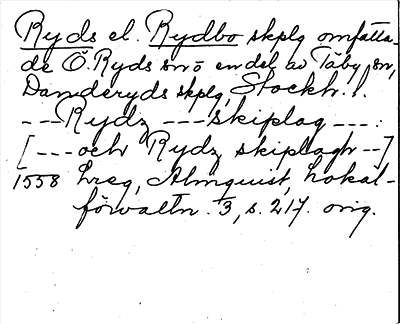 Ryds el. Rydbo skplg omfatta-
de Ö. Ryds sn o en del av Täby sn,
Danderyds skplg, Stockh. l.
--- Rydz --- skiplag ---:
[--- och Rydz skiplagh --]
1558 Lreg, Almquist, Lokal-
förvaltn. 3, s. 217. orig.